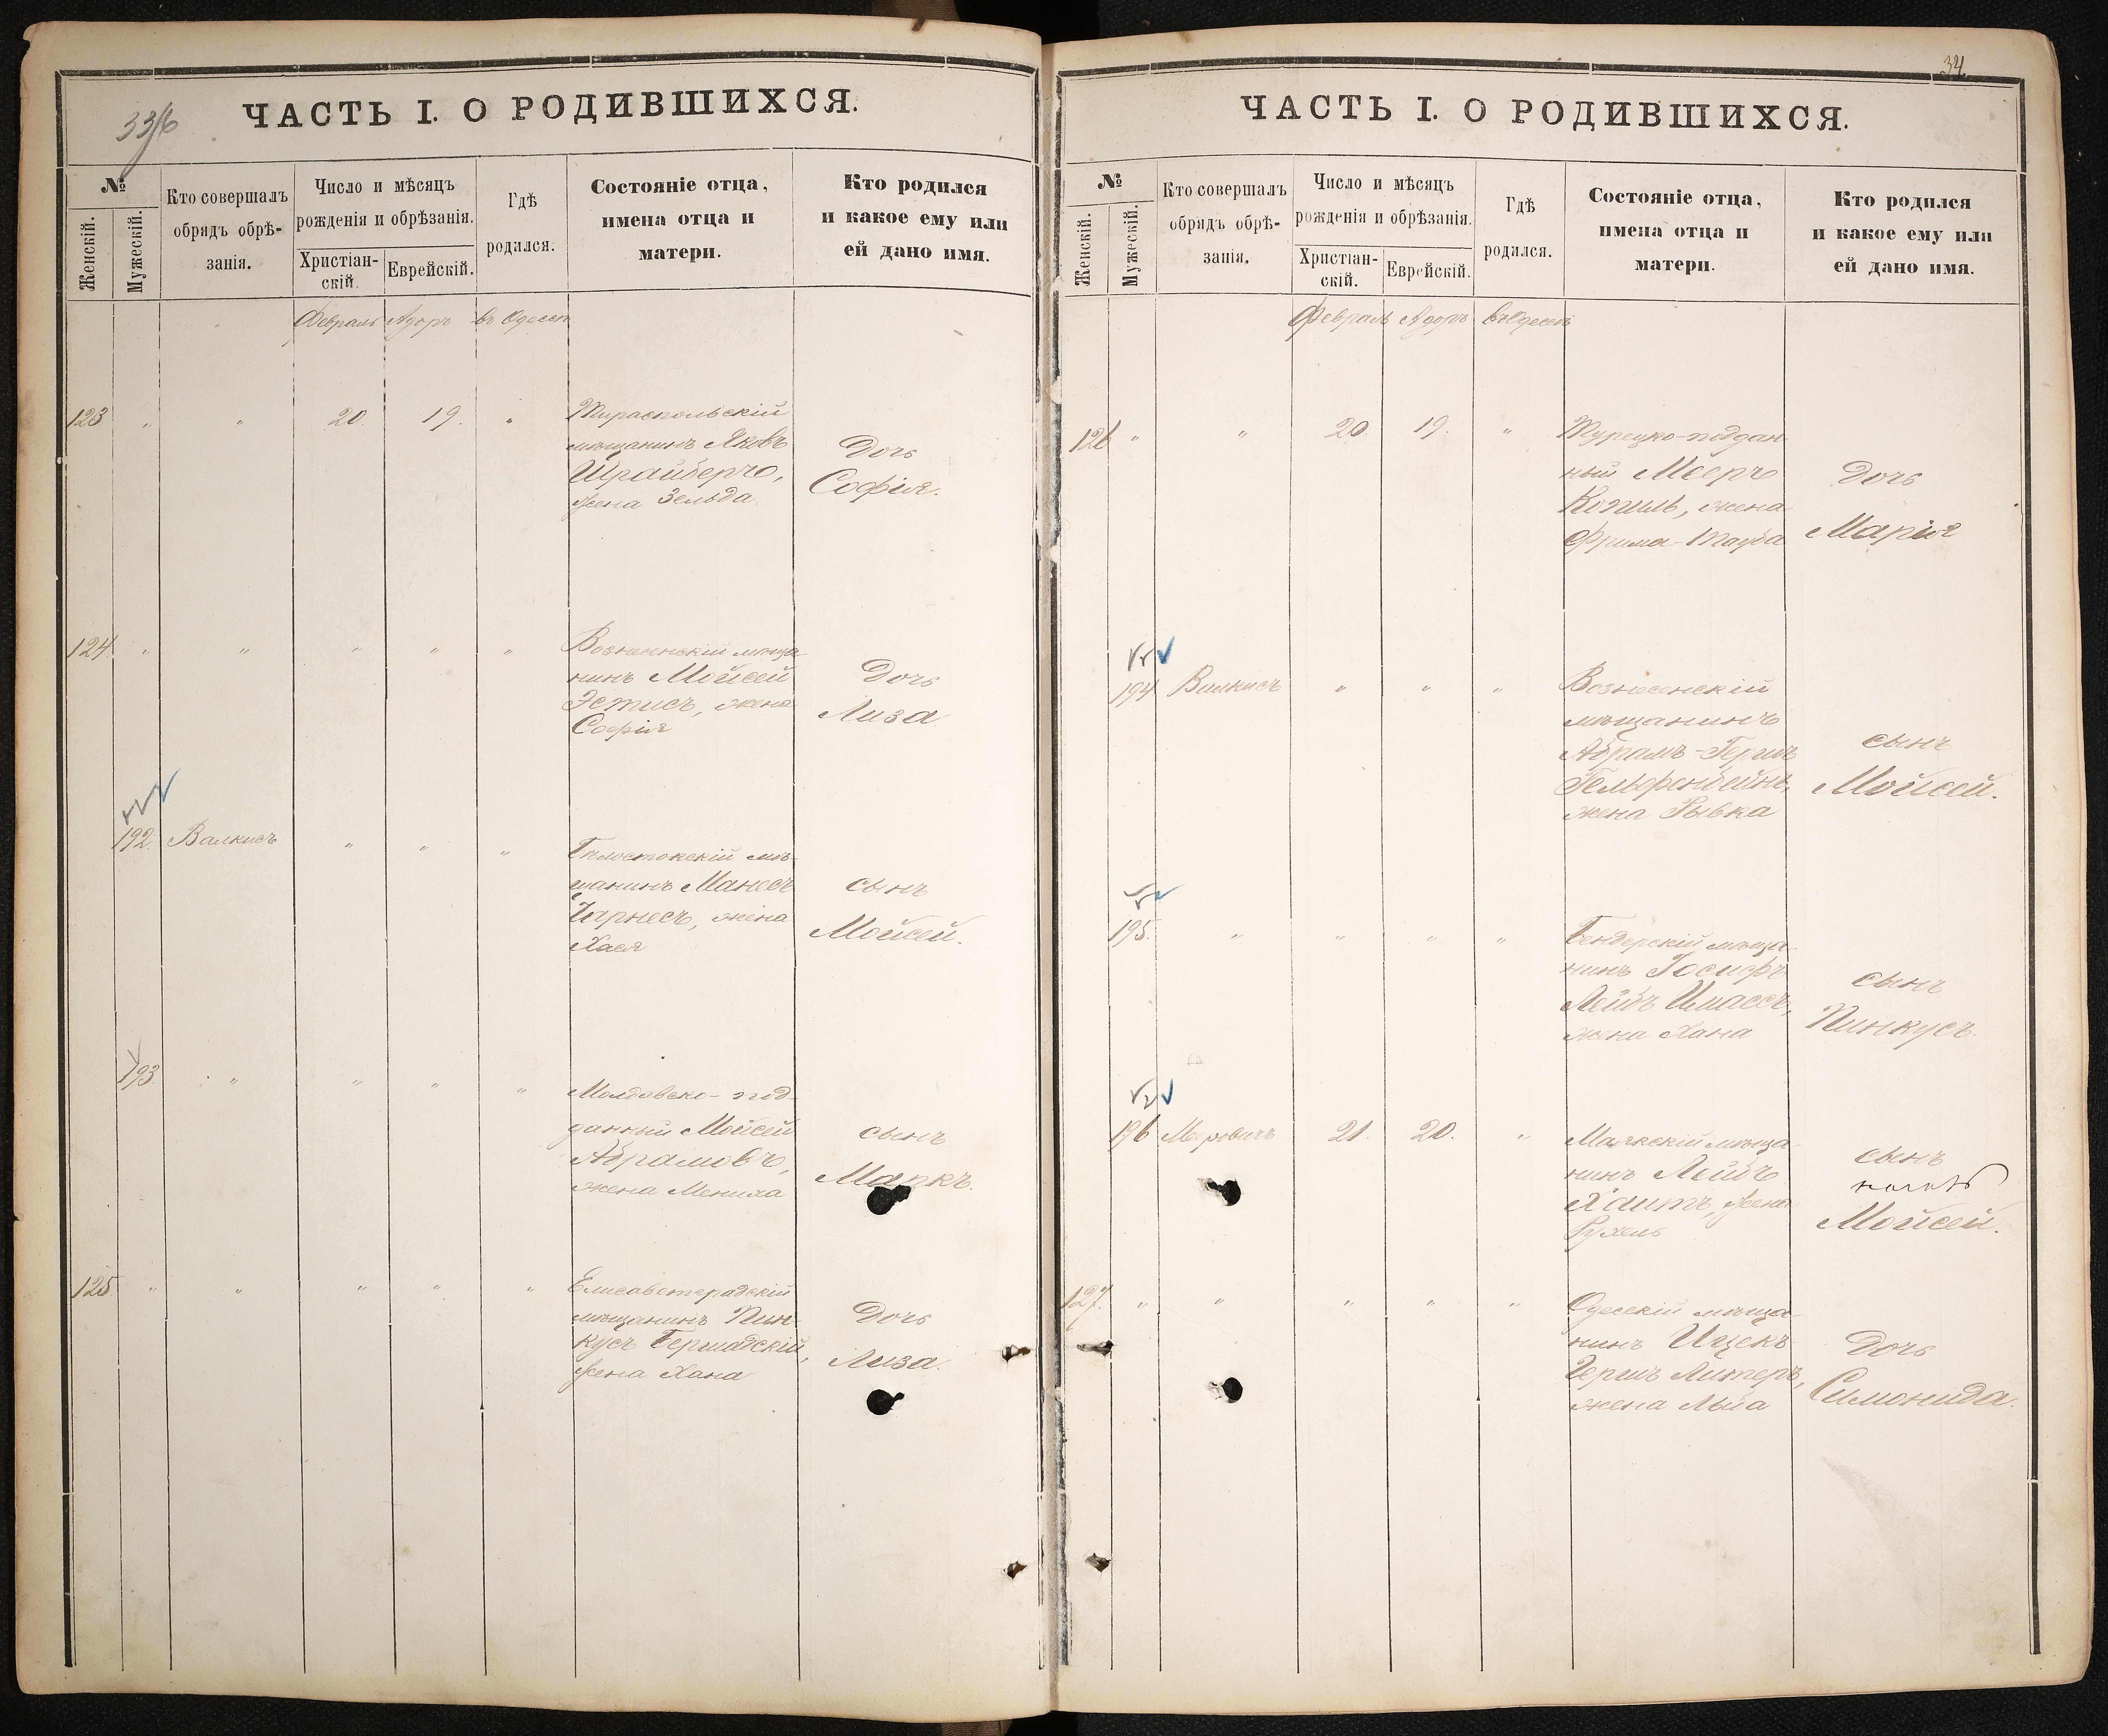 33/б
ЧАСТЬ I. О РОДИВШИХСЯ.
№
Женскій.
Мужескій.
Кто совершалъ
обрядъ обрѣ-
занія.
Число и мѣсяцъ
рожденія и обрѣзанія.
Христіан-
скій.
Еврейскій.
Гдѣ
родился.
Состояніе отца,
имена отца и
матери.
Кто родился
и какое ему или
ей дано имя.
Февраль Адоръ въ Одессѣ
123 " " 20. 19. "
Тираспольскій
мѣщанинъ Яковъ
Шрайберъ,
жена Зельда.
Дочь
Софія.
124 " " " " "
Вознесенскій мѣща-
нинъ Мойсей
Эстисъ, жена
Софія
Дочь
Лиза
192. Валкисъ " " "
Бѣлостокскій мѣ-
щанинъ Манесъ
Чарнесъ, жена
Хася
сынъ
Мойсей.
193 " " " "
Молдавско-под-
данный Мойсей
Абрамовъ,
жена Мениха
сынъ
Маркъ.
125 " " " " "
Елисаветградскій
мѣщанинъ Пин-
кусъ Бершадскій,
жена Хана
Дочь
Лиза.
34.
ЧАСТЬ I. О РОДИВШИХСЯ.
№
Женскій.
Мужескій.
Кто совершалъ
обрядъ обрѣ-
занія.
Число и мѣсяцъ
рожденія и обрѣзанія.
Христіан-
скій.
Еврейскій.
Гдѣ
родился.
Состояніе отца,
имена отца и
матери.
Кто родился
и какое ему или
ей дано имя.
Февраль Адоръ въ Одессѣ
126 " " 20 19. "
Турецко-поддан-
ный Мееръ
Когиль, жена
Фрима-Тауба
Дочь
Марія
194 Валкисъ " " "
Вознесенскій
мѣщанинъ
Абрамъ-Гершъ
Гельфенбейнъ,
жена Рывка
сынъ
Мойсей.
195. " " " "
Бендерскій мѣща-
нинъ Іосифъ
Лейбъ Имассъ,
жена Хана
сынъ
Пинкусъ.
196 Меровичъ 21. 20. "
Маякскій мѣща-
нинъ Лейбъ
Хаитъ, жена
Рухель
сынъ
Мойсей.
127. " " " " "
Одесскій мѣща-
нинъ Ицекъ
Гершъ Литеръ,
жена
Дочь
Симонида.